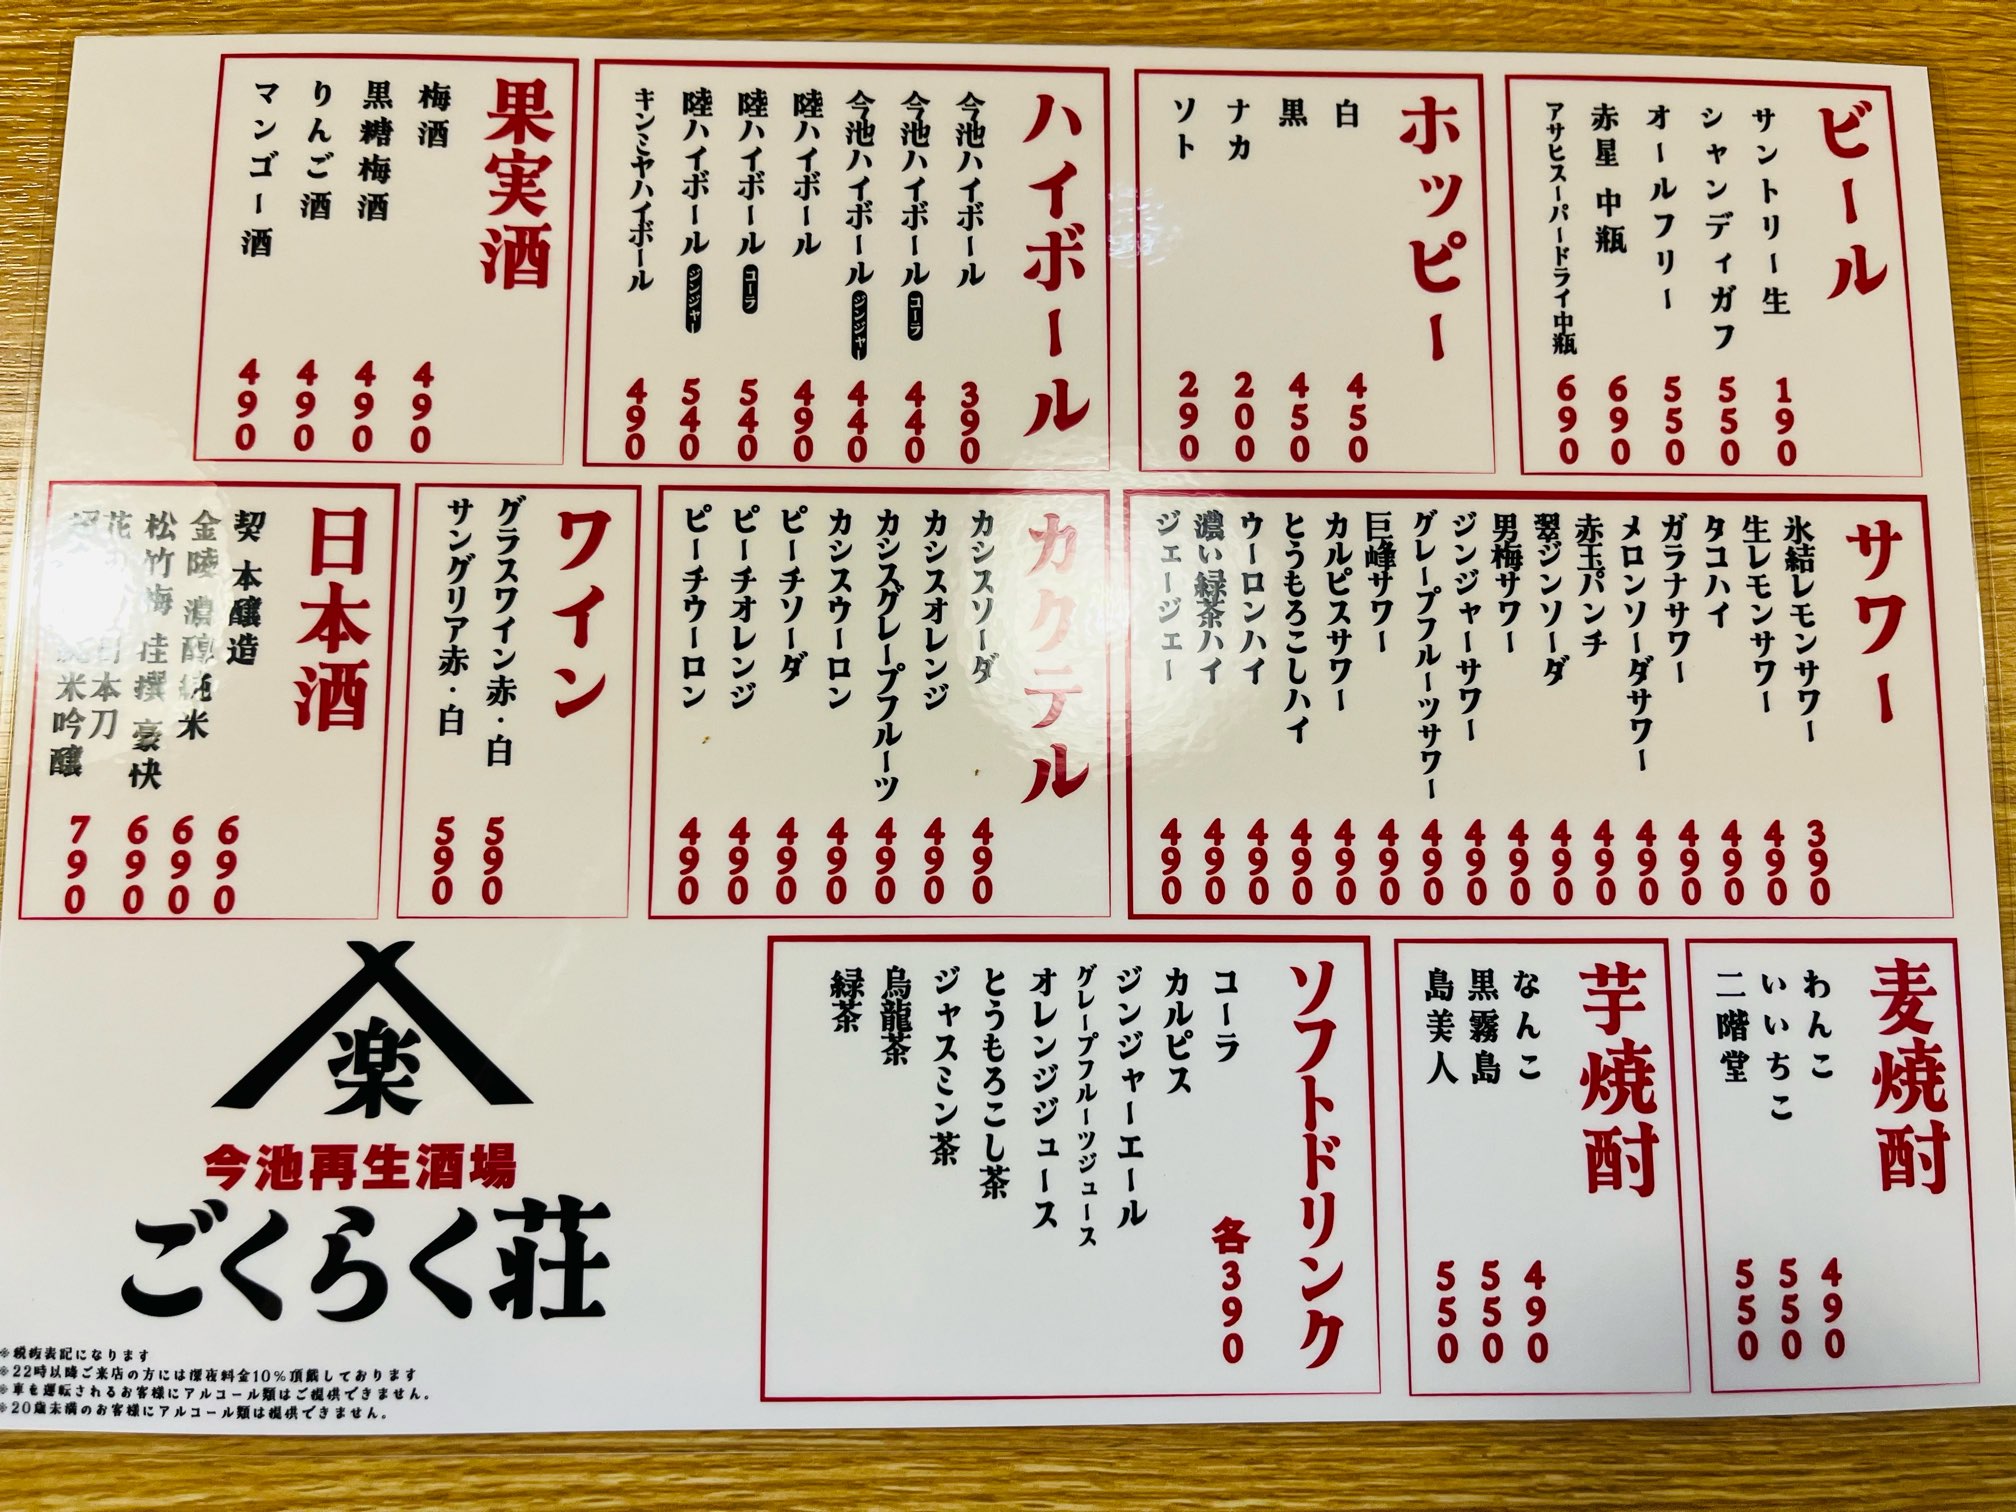 ビール
サントリー生 190
シャンディガフ 550
オールフリー 550
赤星 中瓶 690
アサヒスーパードライ中瓶 690
ホッピー
白 450
黒 450
ナカ 200
ソト 290
ハイボール
今池ハイボール 390
今池ハイボール コーラ 440
今池ハイボール ジンジャー 440
陸ハイボール 490
陸ハイボール コーラ 540
陸ハイボール ジンジャー 540
キンミヤハイボール 490
果実酒
梅酒 490
黒糖梅酒 490
りんご酒 490
マンゴー酒 490
サワー
氷結レモンサワー 390
生レモンサワー 490
タコハイ 490
ガラナサワー 490
メロンソーダサワー 490
赤玉パンチ 490
翠ジンソーダ 490
男梅サワー 490
ジンジャーサワー 490
グレープフルーツサワー 490
巨峰サワー 490
カルピスサワー 490
とうもろこしハイ 490
ウーロンハイ 490
濃い緑茶ハイ 490
ジェージェー 490
カクテル
カシスソーダ 490
カシスオレンジ 490
カシスグレープフルーツ 490
カシスウーロン 490
ピーチソーダ 490
ピーチオレンジ 490
ピーチウーロン 490
ワイン
グラスワイン赤・白 590
サングリア赤・白 590
日本酒
契 本醸造 690
金陵 濃醇純米 690
松竹梅 佳撰 豪快 690
花 日本刀
純米吟醸 790
麦焼酎
わんこ 490
いいちこ 550
二階堂 550
芋焼酎
なんこ 490
黒霧島 550
島美人 550
ソフトドリンク
コーラ 各390
カルピス
ジンジャーエール
グレープフルーツジュース
オレンジジュース
とうもろこし茶
ジャスミン茶
烏龍茶
緑茶
楽
今池再生酒場
ごくらく荘
※税抜表記になります
※22時以降ご来店の方には深夜料金10%頂戴しております
※車を運転されるお客様にアルコール類はご提供できません。
※20歳未満のお客様にアルコール類は提供できません。